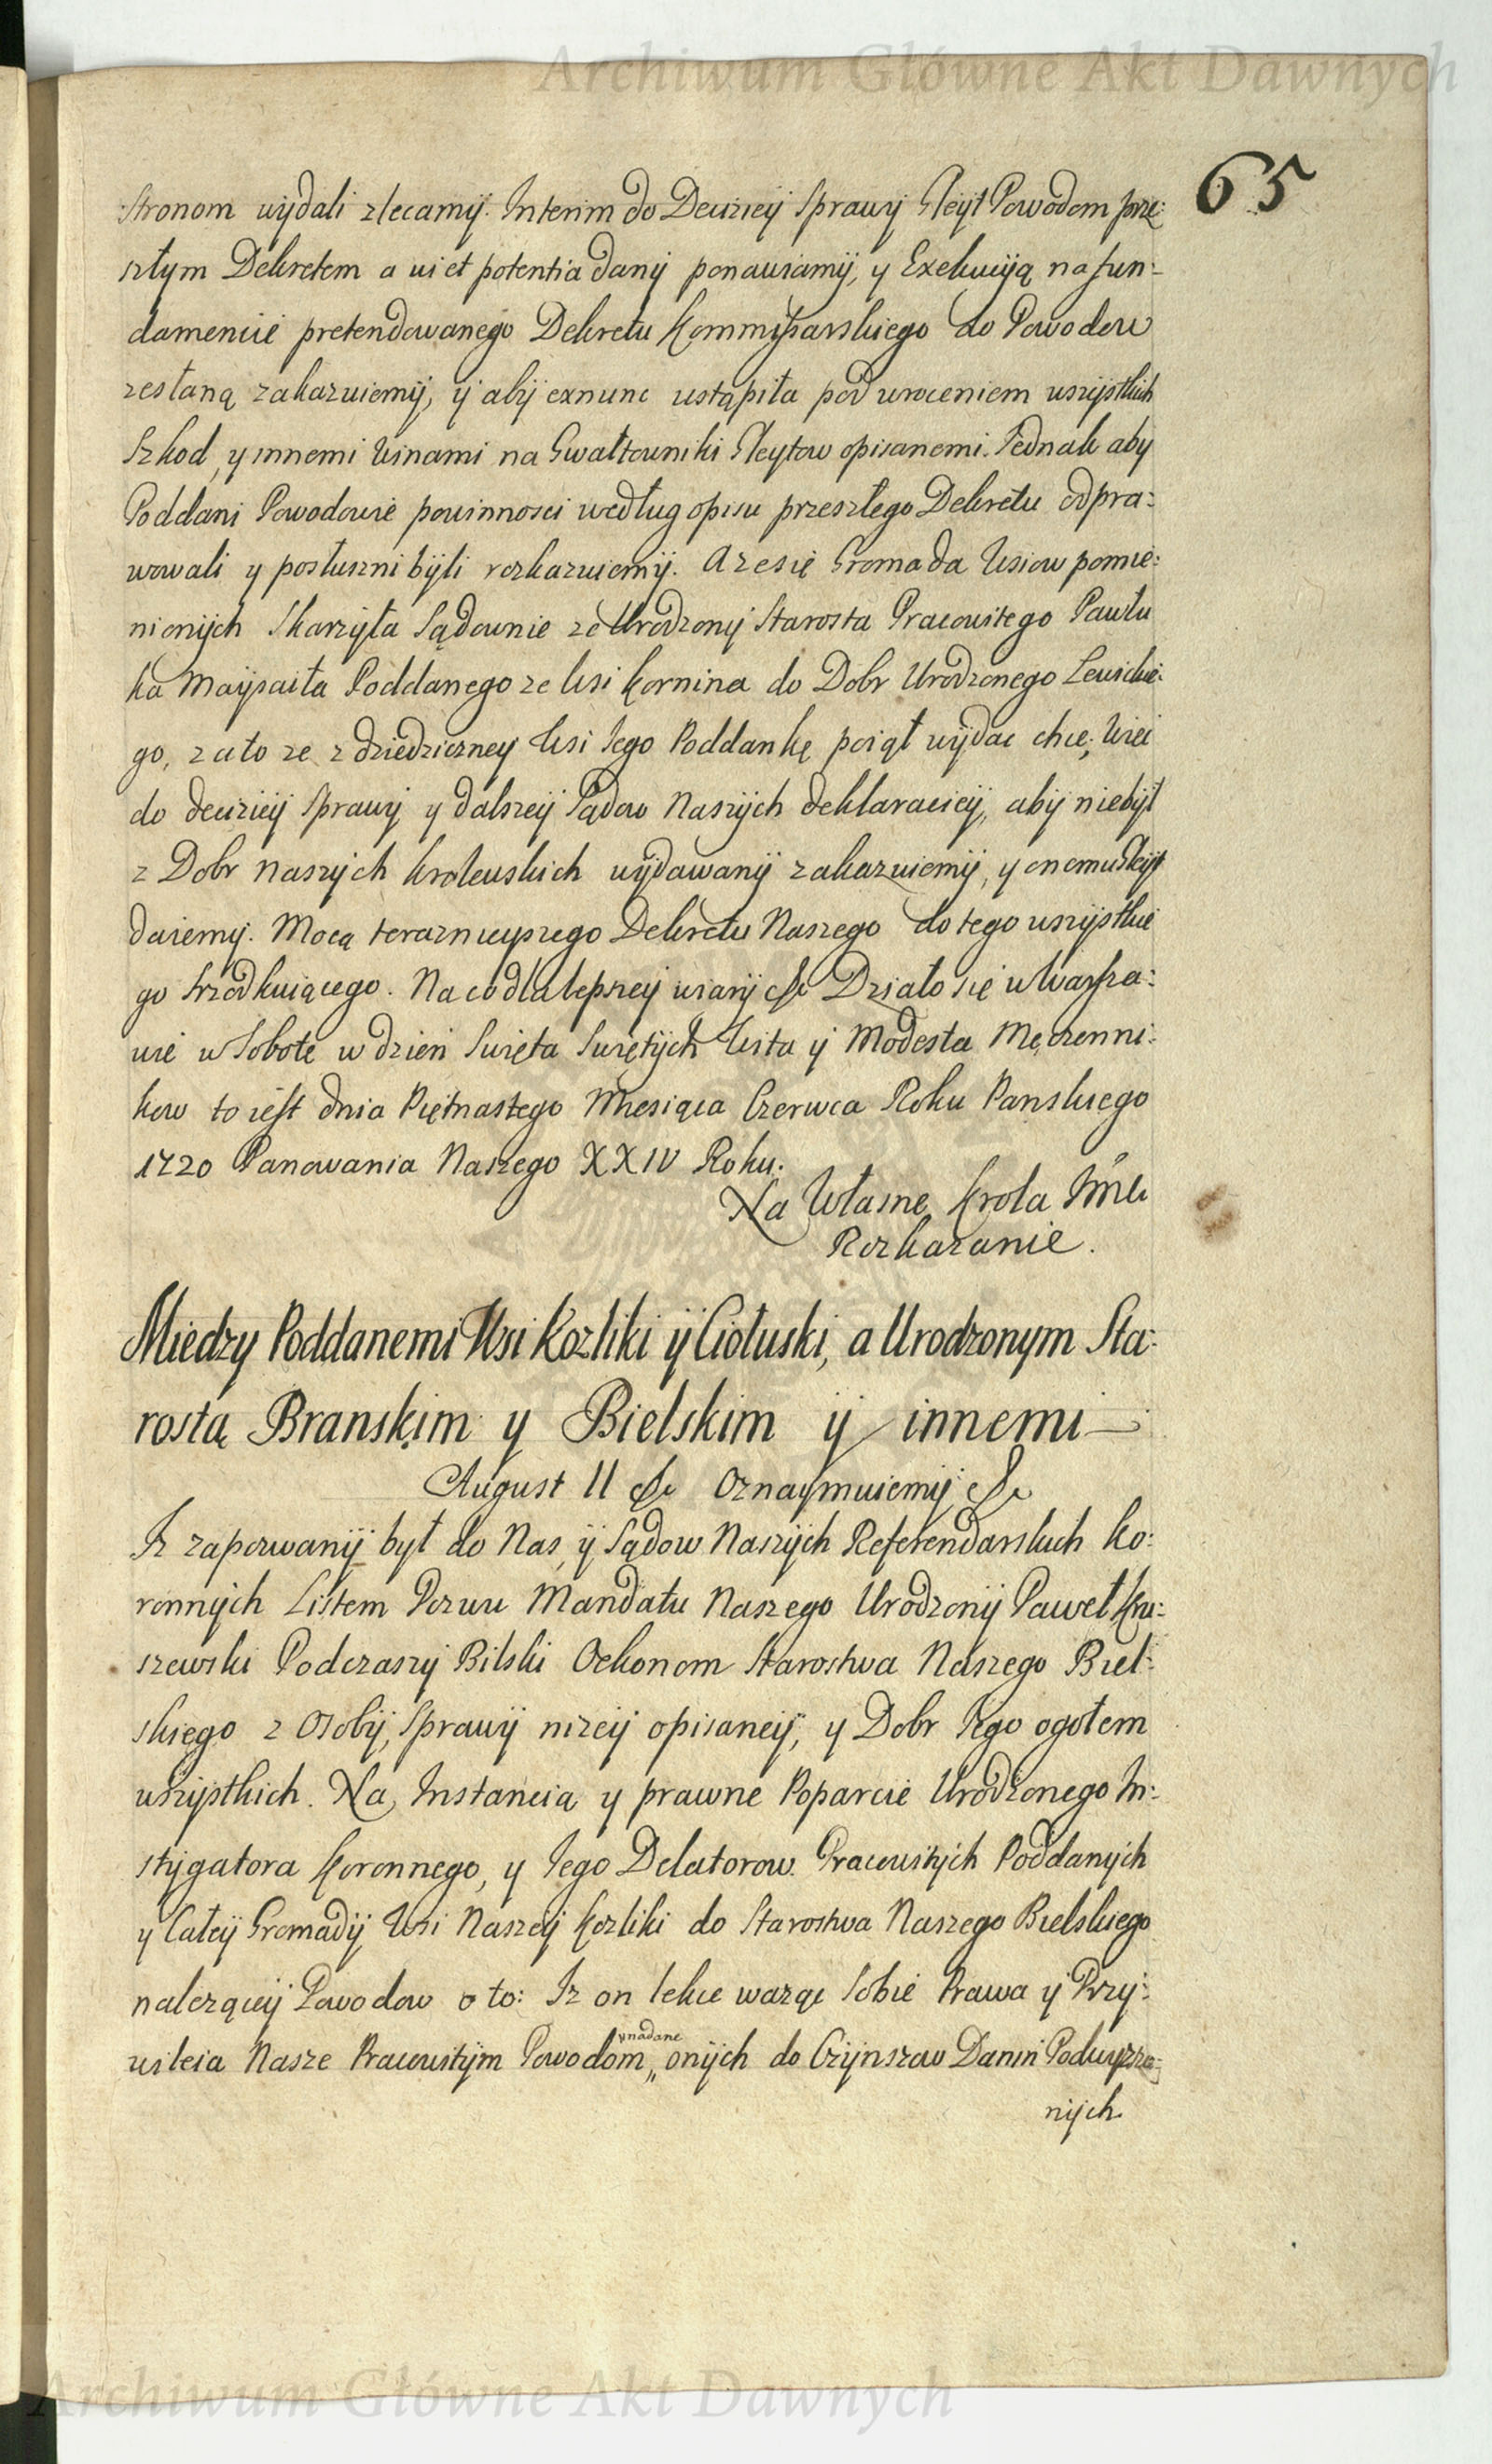 Archiwum Główne Akt Dawnych
65
stronom wydali zlecamy. Interim do Decizieÿ Sprawy Gleyt Powodom prze:
szłym Dekretem a vi et potentia danÿ ponawiamÿ, y Exekucÿą na fun:
damencie pretendowanego Dekretu Kommissarskiego do Powodow
zesłaną zakazuiemÿ, ÿ abÿ exnunc ustąpiła pod wroceniem wszystkich
Szkod, y innemi Winami na Gwałtowniki Gleytow opisanemi. Jednak aby
Poddani Powodowie powinnosci według opisu przeszłego Dekretu odpra:
wowali y posłuszni bÿli rozkazuiemÿ. A ze się Gromada Wsiow pomie:
nionÿch Skarzyła Sądownie ze Urodzonÿ Starosta Pracowitego Pawłu
ka Poddanego ze Wsi Kornina do Dobr Urodzonego Lewickie:
go, za to ze z dziedziczney Wsi Jego Poddankę poiął wÿdac chce, Wiec
do decizieÿ Sprawÿ y dalszeÿ Sądow Naszÿch deklaracieÿ, abÿ niebÿł
z Dobr naszÿch krolewskich wÿdawanÿ zakazuiemÿ, y onemu Gleyt
daiemÿ. Mocą teraznieyszego Dekretu Naszego do tego wszÿstkie
go srzodkuiącego. Na co dla lepszeÿ wiarÿ &c Działo się w Warsza:
wie w Sobotę w dzień Swięta Swiętÿch Wita ÿ Modesta Męczenni:
kow to iest dnia Piętnastego Miesiąca Czerwca Roku Panskiego
1720 Panowania Naszego XXIV Roku.
Na Własne Krola Jmci
Rozkazanie.
Miedzy Poddanemi Wsi Kozliki ÿ Ciołuski, a Urodzonym Sta:
rostą Branskim y Bielskim ÿ innemi
August II &c Oznaymuiemÿ &c
Iz zapozwanÿ był do Nas, ÿ Sądow Naszÿch Referendarskich Ko:
ronnÿch Listem Pozwu Mandatu Naszego Urodzonÿ Paweł Kru:
szewski Podczaszÿ Bilski Oekonom Starostwa Naszego Biel:
skiego z Osobÿ, Sprawÿ nizeÿ opisaneÿ, y Dobr Jego ogołem
wszÿstkich. Na Instancią y prawne Poparcie Urodzonego In:
stÿgatora Koronnego, y Jego Delatorow. Pracowitÿch Poddanÿch
y Całeÿ Gromadÿ Wsi Naszeÿ Kozliki do Starostwa Naszego Bielskiego
nalezącÿ Powodow o to: Iz on lekce waząc Sobie Prawa ÿ Przÿ:
wileia Nasze Pracowitÿm Powodom „ onÿch do Czÿnszow Danin Podwyzszo:
nadane
nÿch.
Archiwum Główne Akt Dawnych